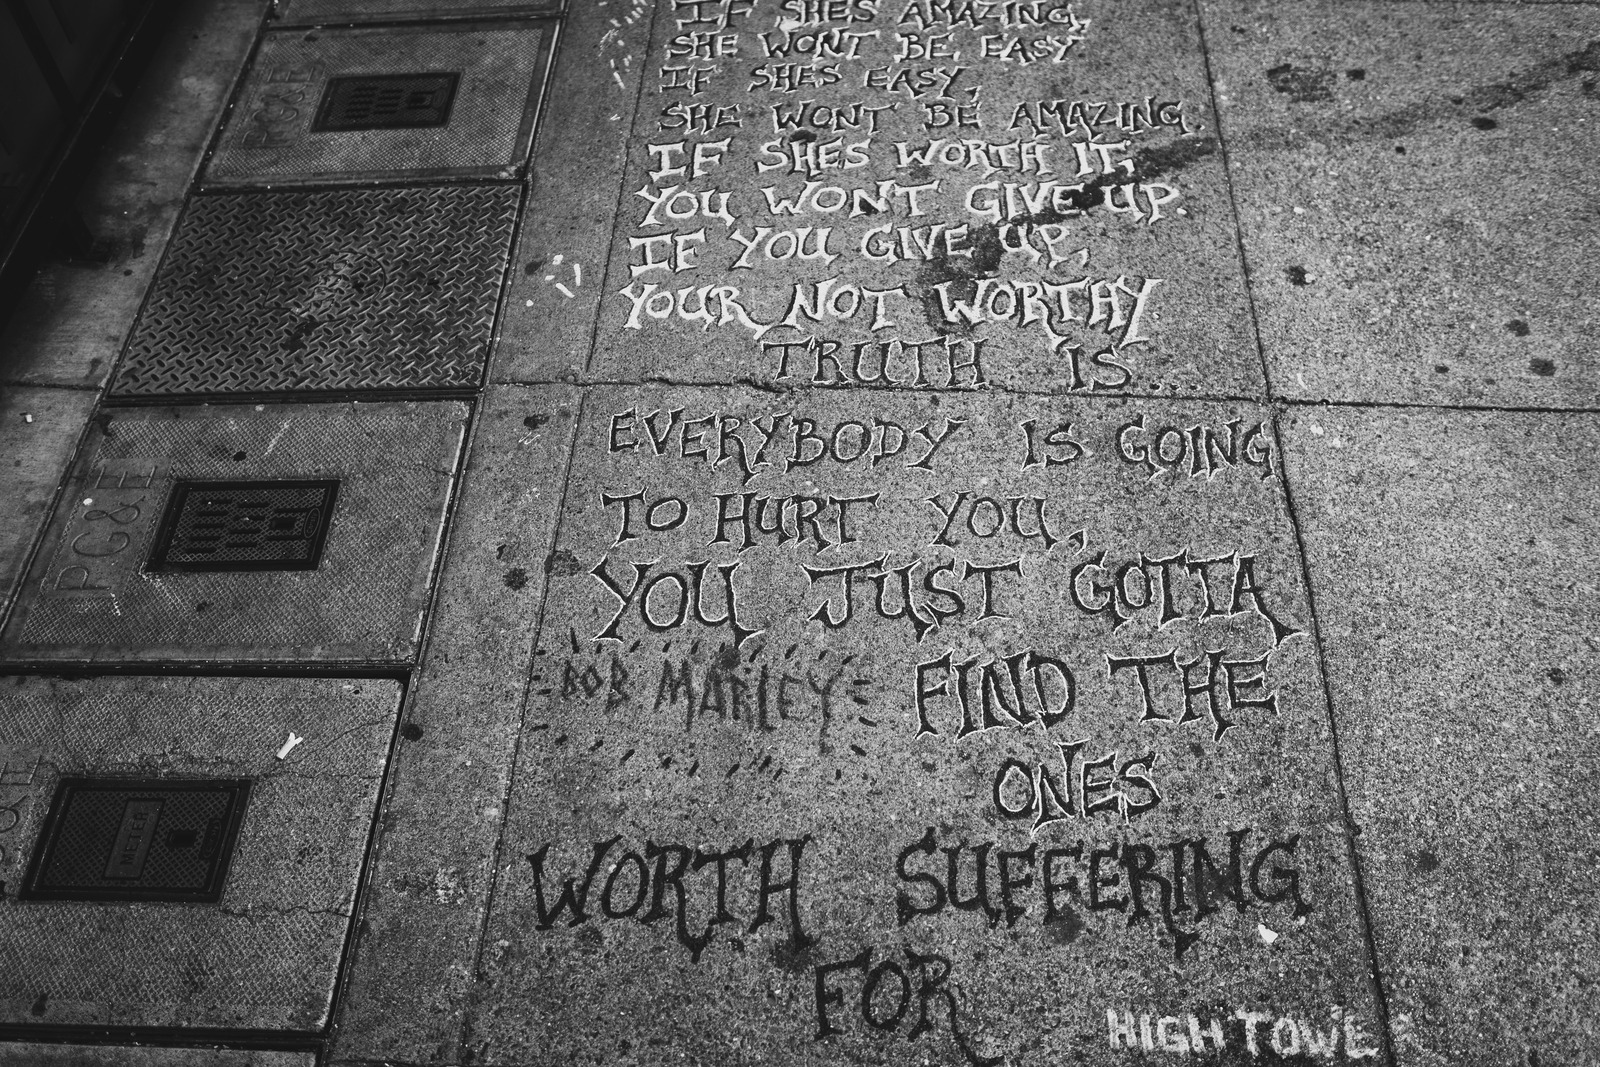 IF SHES AMAZING,
SHE WONT BE EASY
IF SHES EASY,
SHE WONT BE AMAZING.
IF SHES WORTH IT,
YOU WONT GIVE UP.
IF YOU GIVE UP,
YOUR NOT WORTHY
TRUTH IS...
EVERYBODY IS GOING
TO HURT YOU,
YOU JUST GOTTA
FIND THE
ONES
WORTH SUFFERING
FOR
BOB MARLEY
HIGH TOWE
PG&E
PG&E
METER